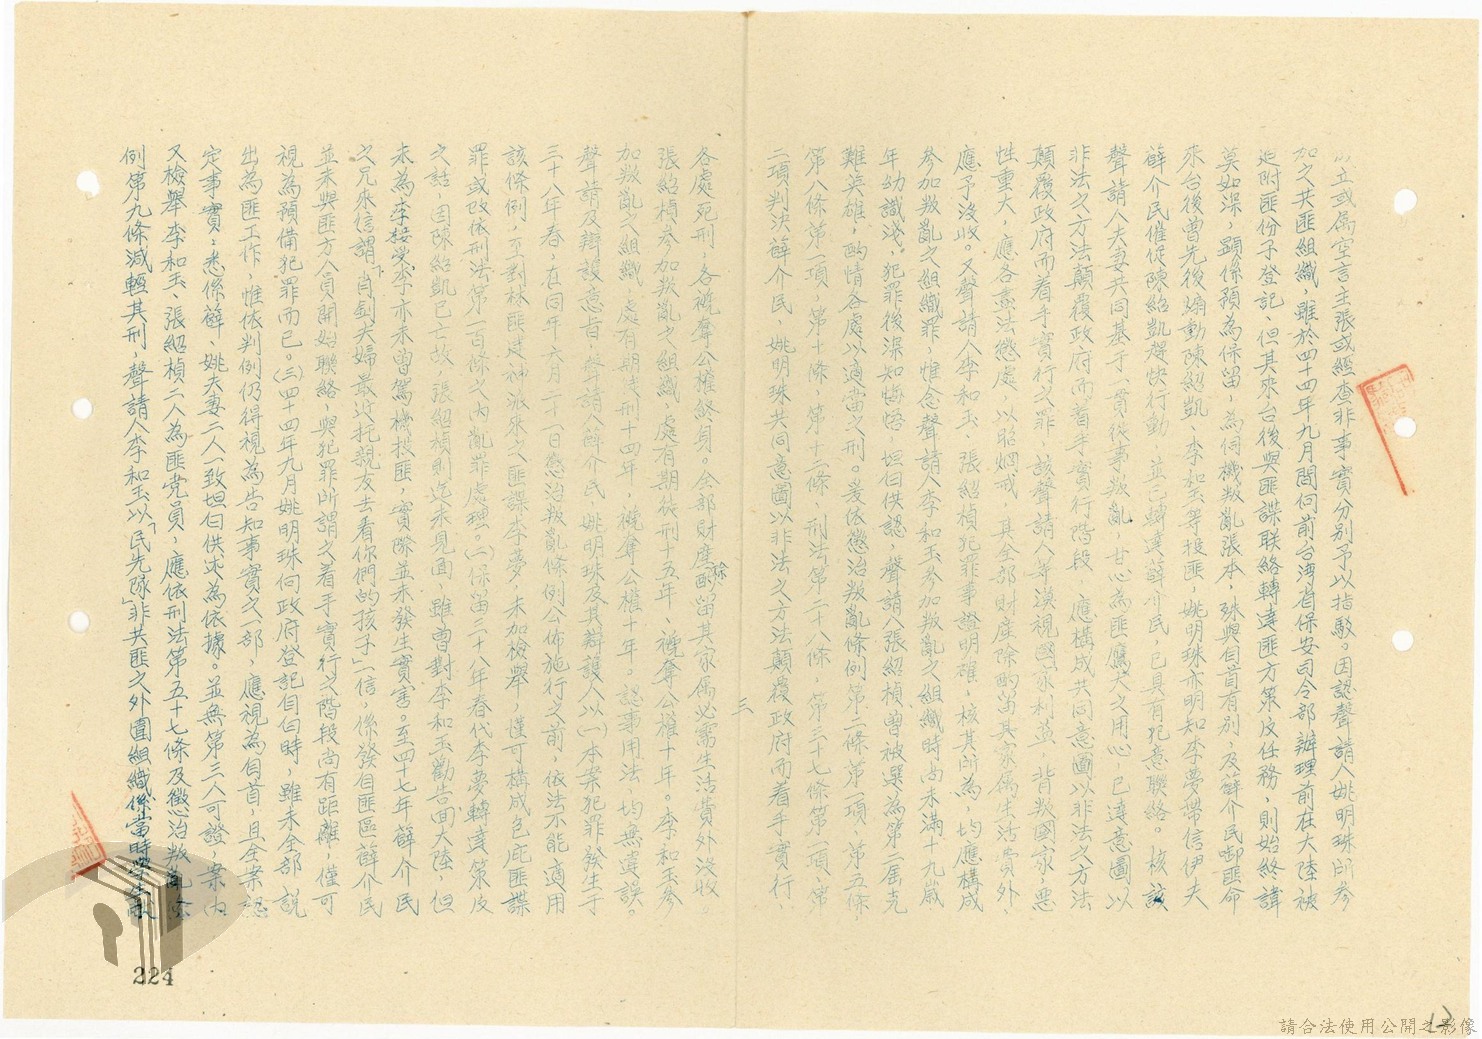 以立或属空言主張或經查非事實分別予以指駁。因認聲請人姚明珠所參
加之共匪組織，雖於四十四年九月間向前台湾省保安司令部辦理前在大陸被
迫附匪份子登記，但其來台後與匪諜联絡轉達匪方策反任務，則始終諱
莫如深，顕係預為保留，為伺機叛亂張本，殊與自首有別，及薛介民啣匪命
來台後曾先後煽動陳紹凱、李和玉等投匪，姚明珠亦明知李夢帶信伊夫
薛介民催促陳紹凱趕快行動，並已轉達薛介民，已具有犯意聯絡。核該
聲請人夫妻共同基于一貫從事叛亂，甘心為匪鷹犬之用心，已達意圖以
非法之方法顛覆政府而着手實行階段，應構成共同意圖以非法之方法
顛覆政府而着手實行之罪，該聲請人等漠視國家利益，背叛國家，惡
性重大，應各盡法懲處，以昭烱戒，其全部財産除酌留其家属生活費外，
應予没收。又聲請人李和玉、張紹楨犯罪事證明確，核其所為，均應構成
參加叛亂之組織罪，惟念聲請人李和玉參加叛亂之組織時尚未滿十九歲，
年幼識淺，犯罪後深知悔悟，坦白供認，聲請人張紹楨曾被選為第二屆克
難英雄，酌情各處以適當之刑。爰依懲治叛亂條例第二條第一項，第五條
第八條第一項，第十條，第十二條，刑法第二十八條，第三十七條第一項，第
二項判決薛介民、姚明珠共同意圖以非法之方法顛覆政府而着手實行，
三
各處死刑，各褫奪公權終身。全部財産除酌留其家属必需生活費外没收。
張紹楨參加叛亂之組織，處有期徒刑十五年，褫奪公權十年。李和玉參
加叛亂之組織，處有期徒刑十四年，褫奪公權十年。認事用法，均無違誤。
聲請及辯護意旨，聲請人薛介民、姚明珠及其辯護人以(一)本案犯罪發生于
三十八年春，在同年六月二十一日懲治叛亂條例公佈施行之前，依法不能適用
該條例，至對林匪建神派來之匪諜李夢，未加檢舉，僅可構成包庇匪諜
罪或改依刑法第一百條之内亂罪處理。(二)保留三十八年春代李夢轉達策反
之話，因陳紹凱已亡故，張紹楨則迄未見面，雖曾對李和玉勸告回大陸，但
未為李接受，李亦未曾駕機投匪，實際並未發生實害。至四十七年薛介民
之兄來信謂「肖釗夫婦最近托親友去看你們的孩子」一信，係發自匪區，薛介民
並未與匪方人員開始聯絡，與犯罪所謂之着手實行之階段尚有距離，僅可
視為預備犯罪而已。(三)四十四年九月姚明珠向政府登記自白時，雖未全部說
出為匪工作，惟依判例仍得視為告知事實之一部，應視為自首，且全案認
定事實，悉係薛、姚夫妻二人一致坦白供述為依據。並無第三人可證，案內
又檢舉李和玉、張紹楨二人為匪党員，應依刑法第五十七條及懲治叛亂條
例第九條減輕其刑，聲請人李和玉以「民先隊」非共匪之外圍組織係當時學生
224
請合法使用公開之影像